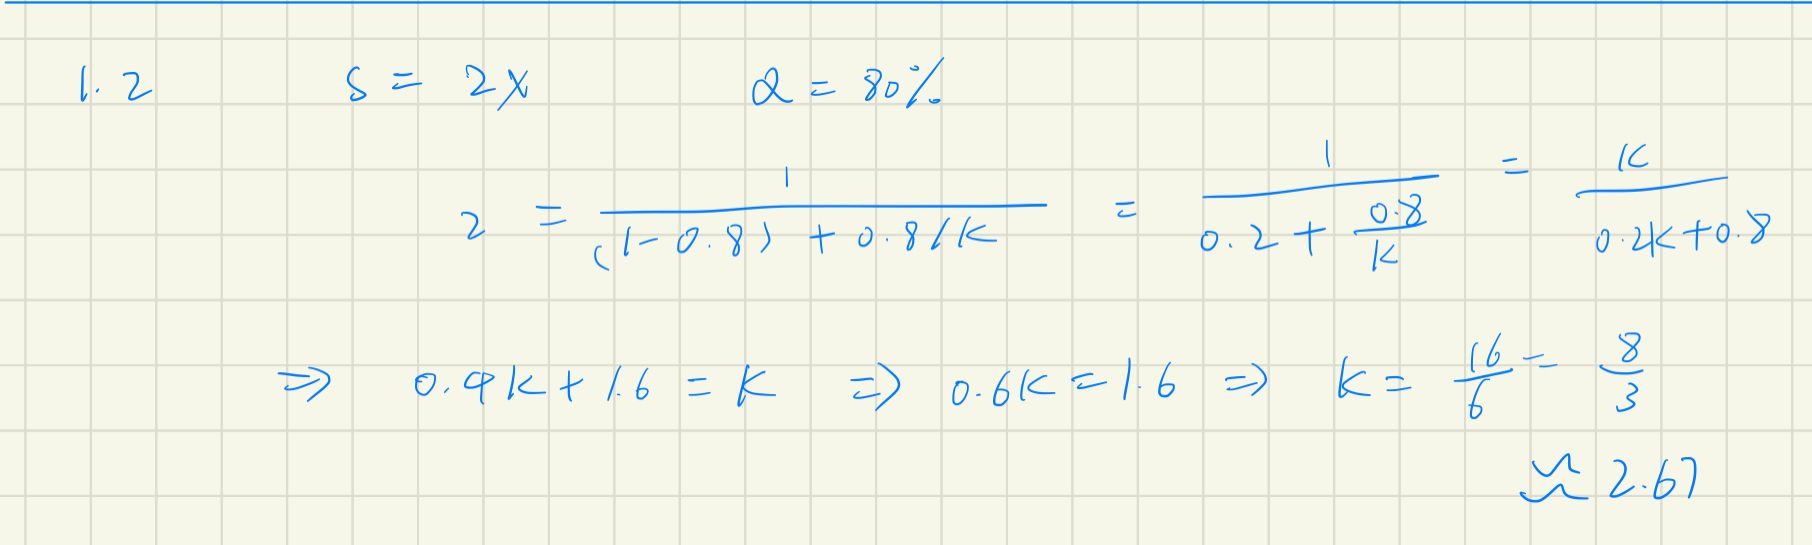 1.2 S = 2X α = 80%
2 = 1 / ((1-0.8) + 0.8/K) = 1 / (0.2 + 0.8/K) = K / (0.2K+0.8)
⇒ 0.4K + 1.6 = K ⇒ 0.6K = 1.6 ⇒ K = 16/6 = 8/3
≈ 2.67